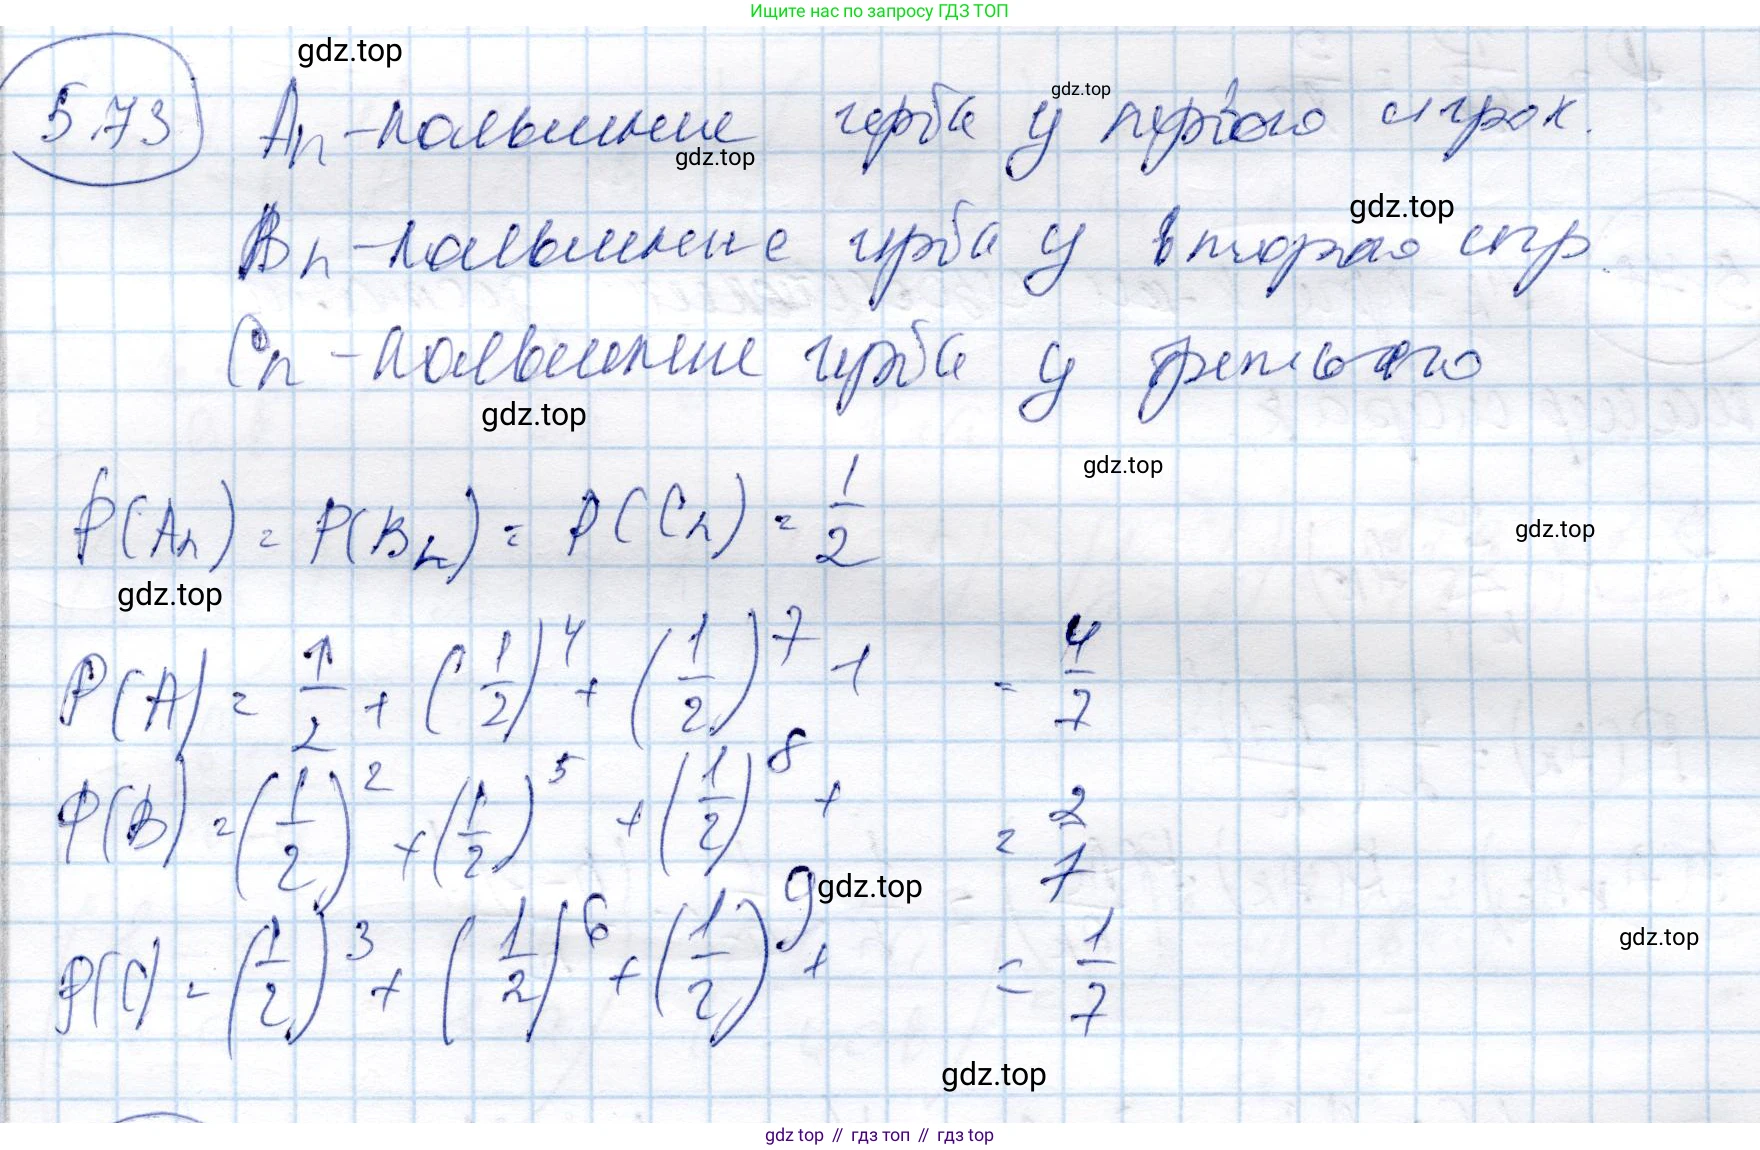 Ищите нас по запросу ГДЗ ТОП
gdz.top
5.73 Aₙ - появление герба у первого игрок.
gdz.top
gdz.top
Bₙ - появление герба у второго игр.
gdz.top
Cₙ - появление герба у третьего
gdz.top
gdz.top
P(Aₙ) = P(Bₙ) = P(Cₙ) = 1/2
gdz.top
gdz.top
P(A) = 1/2 + (1/2)⁴ + (1/2)⁷ + = 4/7
P(B) = (1/2)² + (1/2)⁵ + (1/2)⁸ + = 2/7
gdz.top
P(C) = (1/2)³ + (1/2)⁶ + (1/2)⁹ + = 1/7
gdz.top
gdz.top
gdz top // гдз топ // gdz top